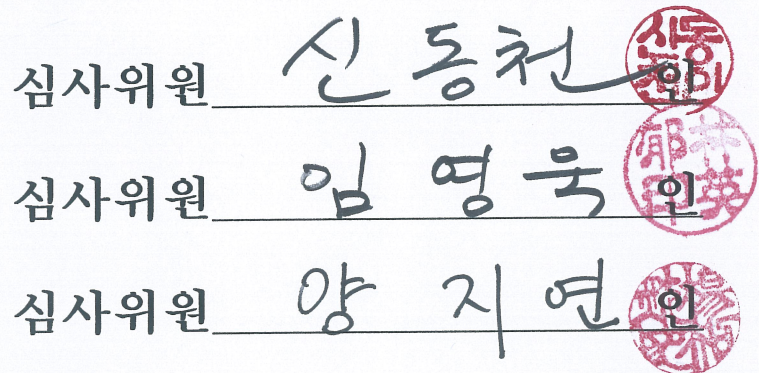 심사위원 신동천 인
심사위원 임영욱 인
심사위원 양지연 인